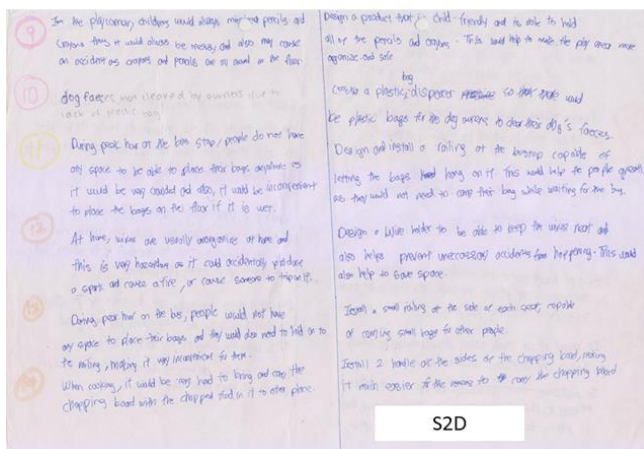 9
In the play corner, childrens would always misplaced pencils and
crayons thus it would always be messy and also may cause
an accident as crayons and pencils are all around on the floor.
10
dog faeces not cleaned by owners due to
lack of plastic bag
11
During peak hour at the bus stop, people do not have
any space to be able to place their bags anywhere as
it would be very crowded and also, it would be inconvenient
to place the bags on the floor if it is wet.
12
At home, wires are usually unorganize at home and
this is very hazardous as it could accidentally produce
a spark and cause a fire, or cause someone to trip on it.
During peak hour on the bus, people would not have
any space to place their bags and they would also need to hold on to
the railing, making it very inconvenient for them.
When cooking, it would be very hard to bring and carry the
chopping board with the chopped food in it to other place.
Design a product that is child-friendly and is able to hold
all of the pencils and crayons. This would help to make the play area more
organize and safe
bag
create a plastic dispenser so that there would
be plastic bags for the dog owners to clear their dog's faeces.
Design and install a railing at the bus stop capable of
letting the bags hang on it. This would help the people
as they would not need to carry their bag while waiting for the bus.
Design a wire holder to be able to keep the wires neat and
also helps prevent unnecessary accidents from happening. This would
also help to save space.
Install a small railing at the side of each seat, capable
of carrying small bags for other people.
Install 2 handle at the sides of the chopping board, making
it much easier to carry the chopping board
S2D